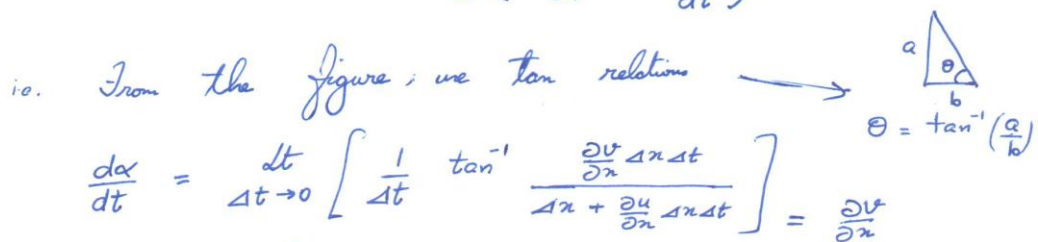 i.e. From the figure, use tan relations ⟶
a
θ
b
θ = tan⁻¹(a/b)
dα/dt = Lt Δt→0 [ 1/Δt tan⁻¹ (∂v/∂x Δx Δt)/(Δx + ∂u/∂x Δx Δt) ] = ∂v/∂x